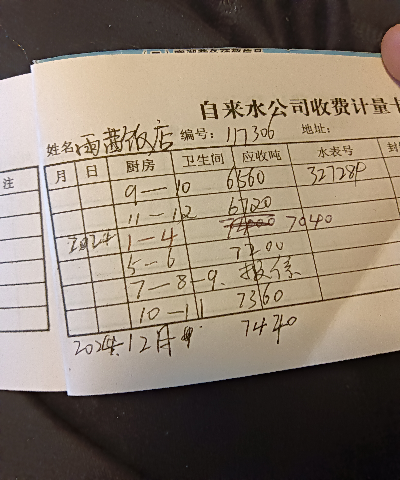 自来水公司收费计量卡
姓名 雨茜饭店 编号: 117306 地址:
注 月 日 厨房 卫生间 应收吨 水表号
9—10 6560 327284
11—12 6720
2024 1—4 7040
5—6 7200
7—8—9 报停
10—11 7360
2024年12月 7440